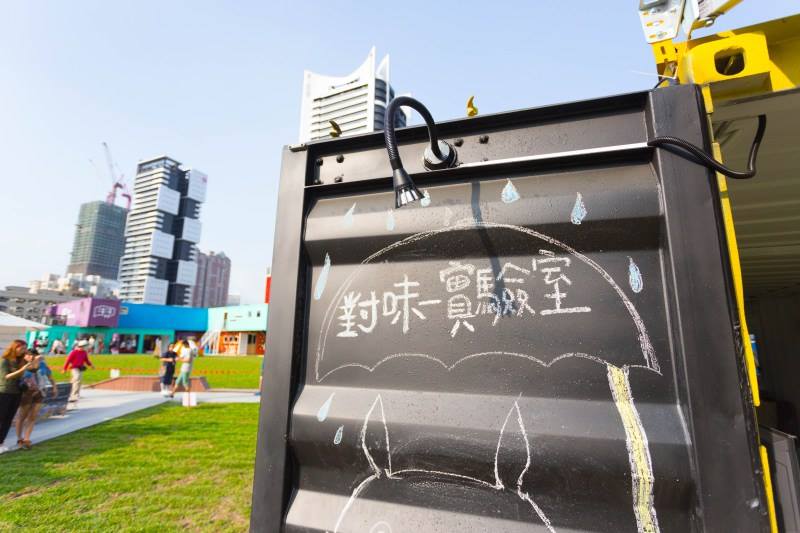 對味一實驗室